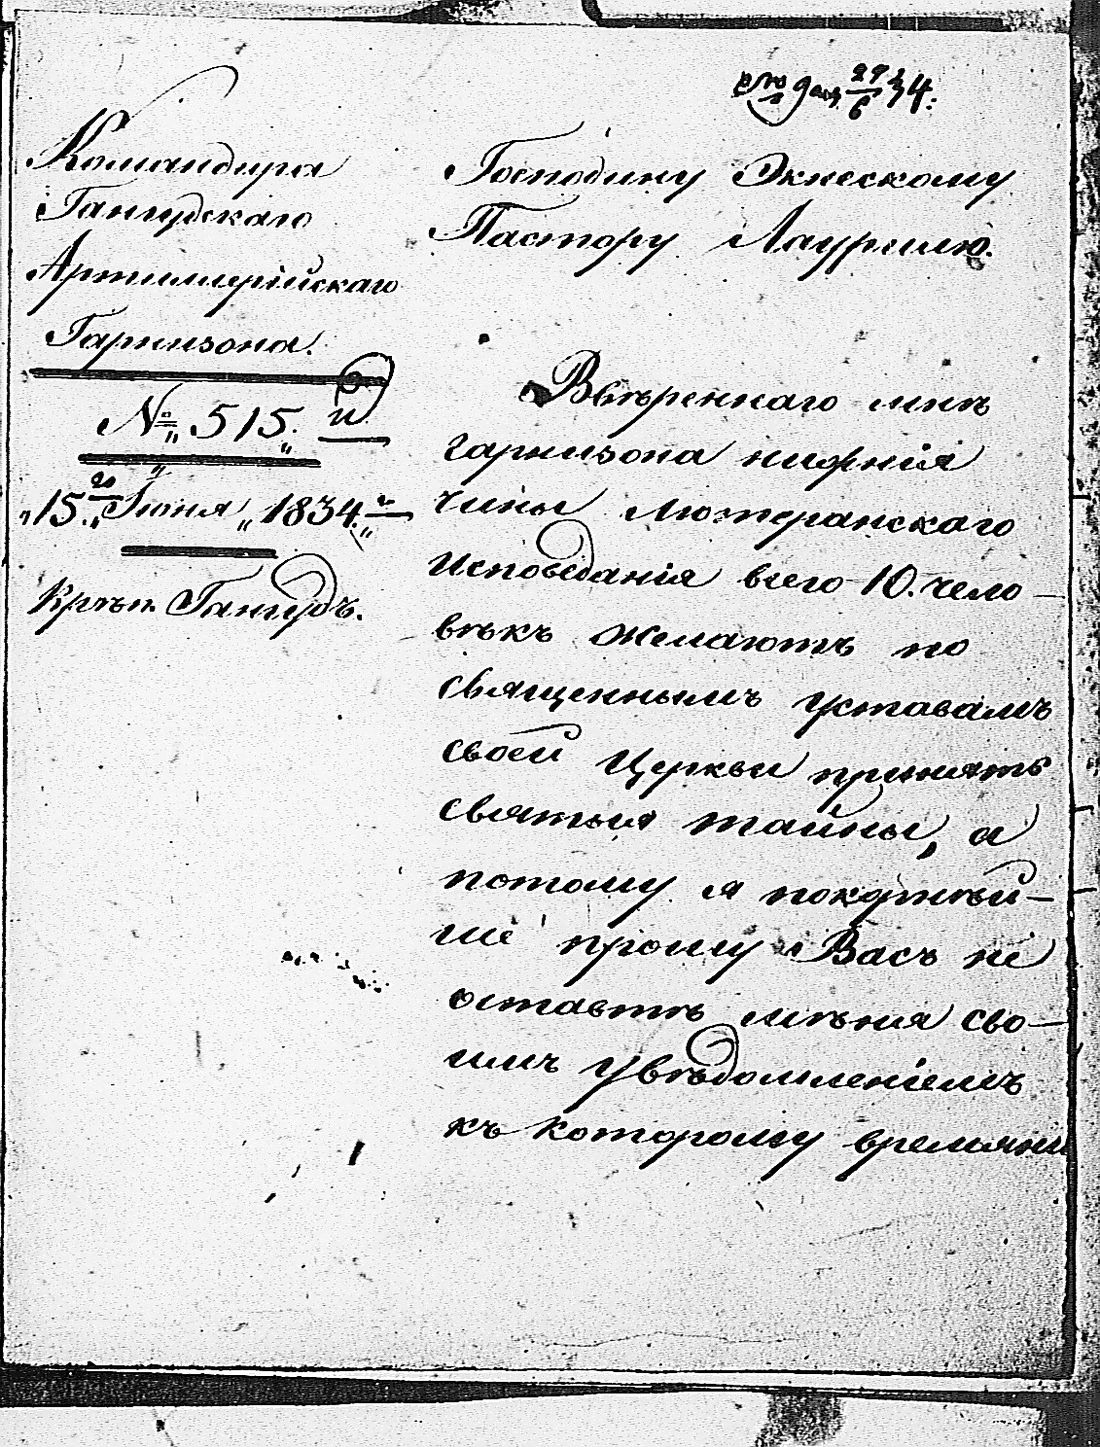 29/6 34.
Командира
Гангудскаго
Артиллерійскаго
Гарнизона.
№ 515. й
„15.го Іюня „ 1834. г.
Крѣп. Гангудъ.
Господину Экнескому
Пастору Лаурелю.
Ввѣреннаго мнѣ
гарнизона нижнія
чины Лютеранскаго
Исповеданія всего 10. чело-
вѣкъ желаютъ по
священнымъ уставамъ
своей Церкви принять
святыя тайны, а
потому я покорнѣй-
ше прошу Васъ не
оставить мѣня сво-
имъ увѣдомленіемъ
къ которому времяни